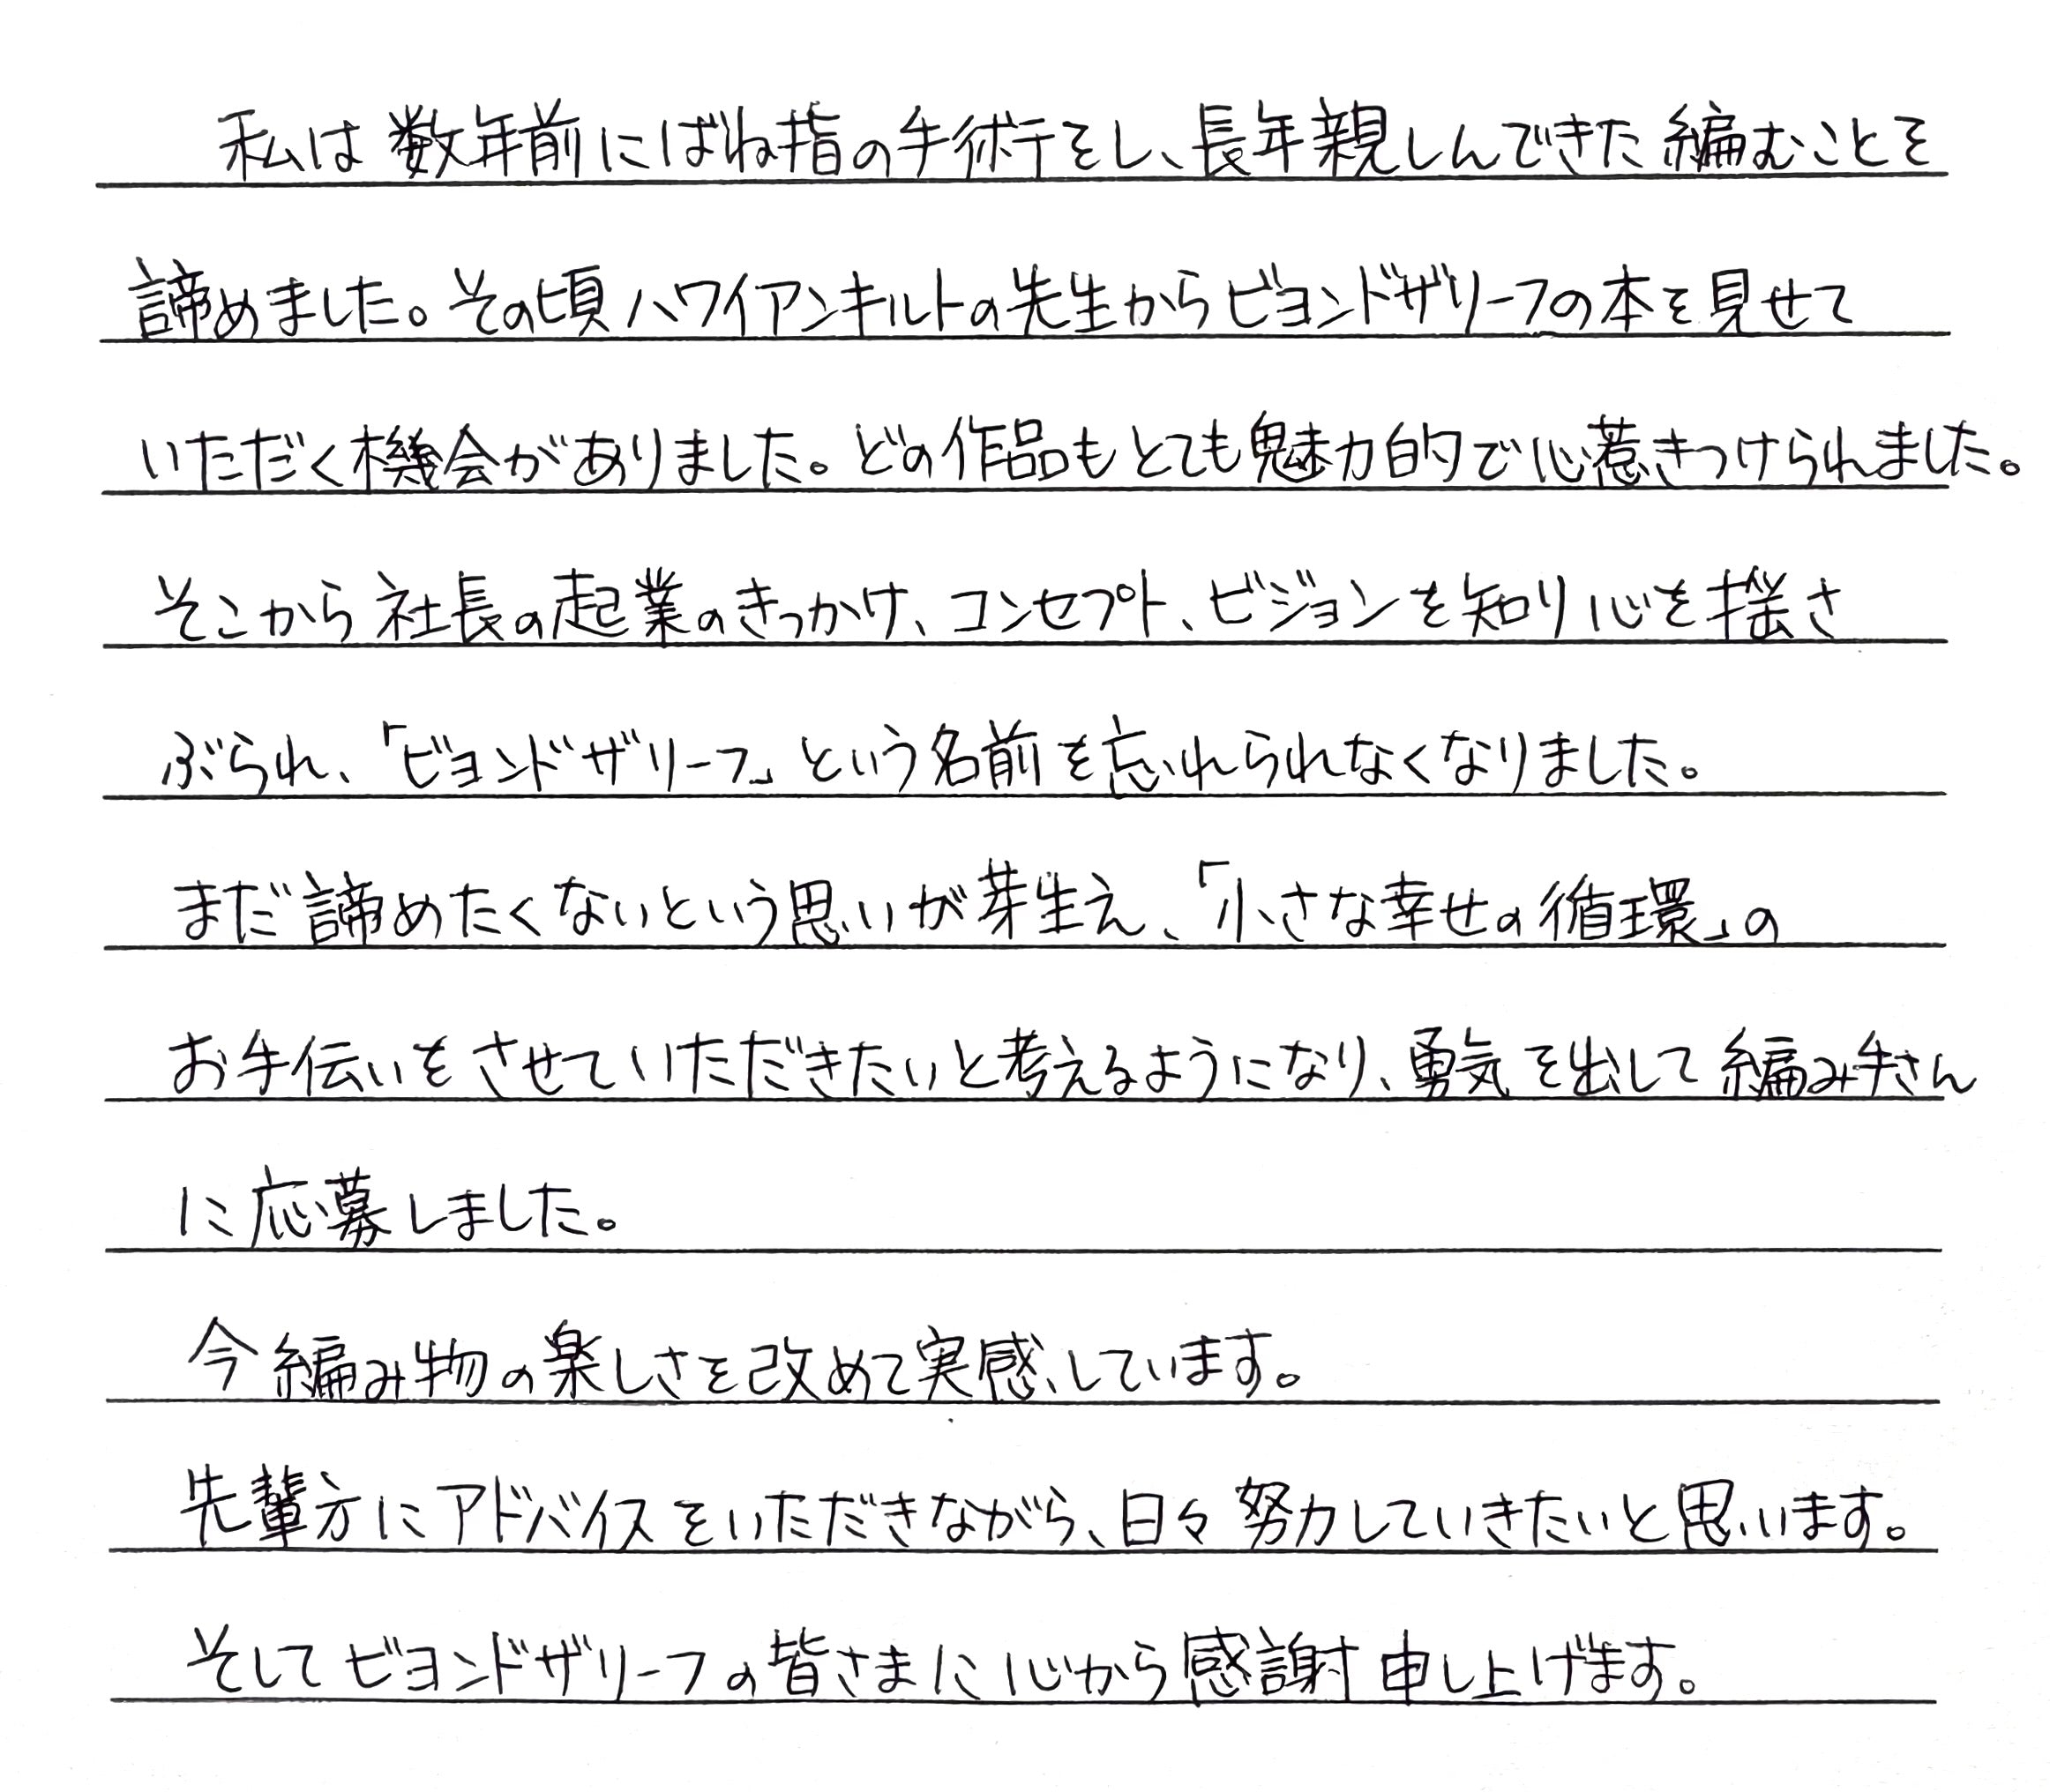 私は数年前にばね指の手術をし、長年親しんできた編むことを
諦めました。その頃ハワイアンキルトの先生からビヨンドザリーフの本を見せて
いただく機会がありました。どの作品もとても魅力的で心惹きつけられました。
そこから社長の起業のきっかけ、コンセプト、ビジョンを知り心を揺さ
ぶられ、「ビヨンドザリーフ」という名前を忘れられなくなりました。
まだ諦めたくないという思いが芽生え、「小さな幸せの循環」の
お手伝いをさせていただきたいと考えるようになり、勇気を出して編み手さん
に応募しました。
今編み物の楽しさを改めて実感しています。
先輩方にアドバイスをいただきながら、日々努力していきたいと思います。
そしてビヨンドザリーフの皆さまに心から感謝申し上げます。